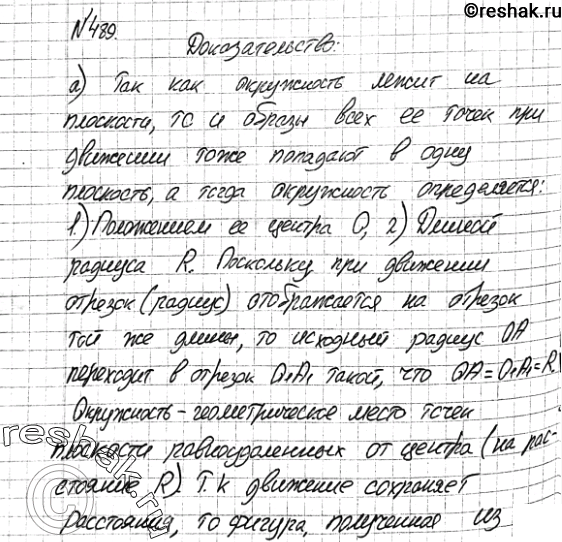 ©reshak.ru
№489.
Доказательство:
а) Так как окружность лежит на
плоскости, то и образы всех ее точек при
движении тоже попадают в одну
плоскость, а тогда окружность определяется:
1.) Положением ее центра О, 2) Длиной
радиуса R. Поскольку при движении
отрезок (радиус) отображается на отрезок
той же длины, то исходный радиус OA
переходит в отрезок O₁A₁ такой, что OA=O₁A₁=R.
Окружность - геометрическое место точек
плоскости равноудаленных от центра (на рас-
стояние R) Т.к движение сохраняет
расстояния, то фигура, полученная из
reshak.ru